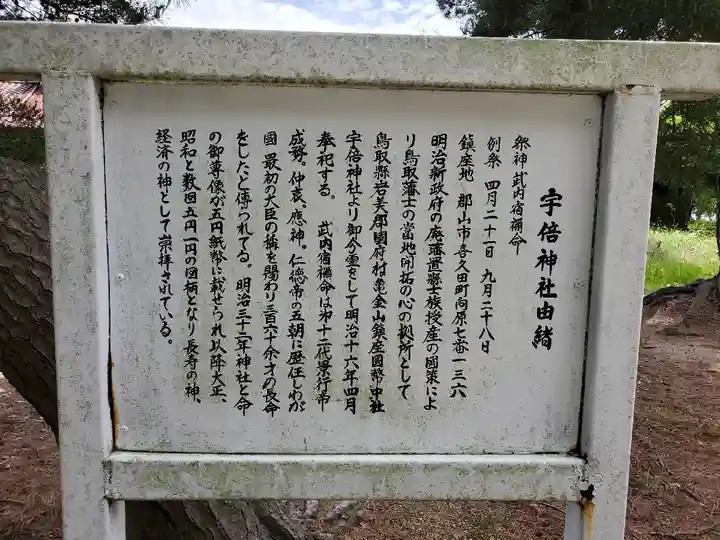 宇倍神社由緒
祭神 武内宿禰命
例祭 四月二十一日 九月二十八日
鎮座地 郡山市喜久田町向原七番一三六
明治新政府の廃藩置縣士族授産の國策によ
り鳥取藩士の當地開拓の心の拠所として
鳥取縣岩美郡國府村亀金山鎮座國幣中社
宇倍神社より御分霊をして明治十六年四月
奉祀する。 武内宿禰命は第十二代景行帝
成務。仲哀。應神。仁徳帝の五朝に歴任しわが
國最初の大臣の称を賜わり三百六十余才の長命
をしたと傳られてる。明治三十二年神社と命
の御尊像が五円紙幣に載せられ以降大正、
昭和と数回五円一円の図柄となり長寿の神、
経済の神として崇拝されている。